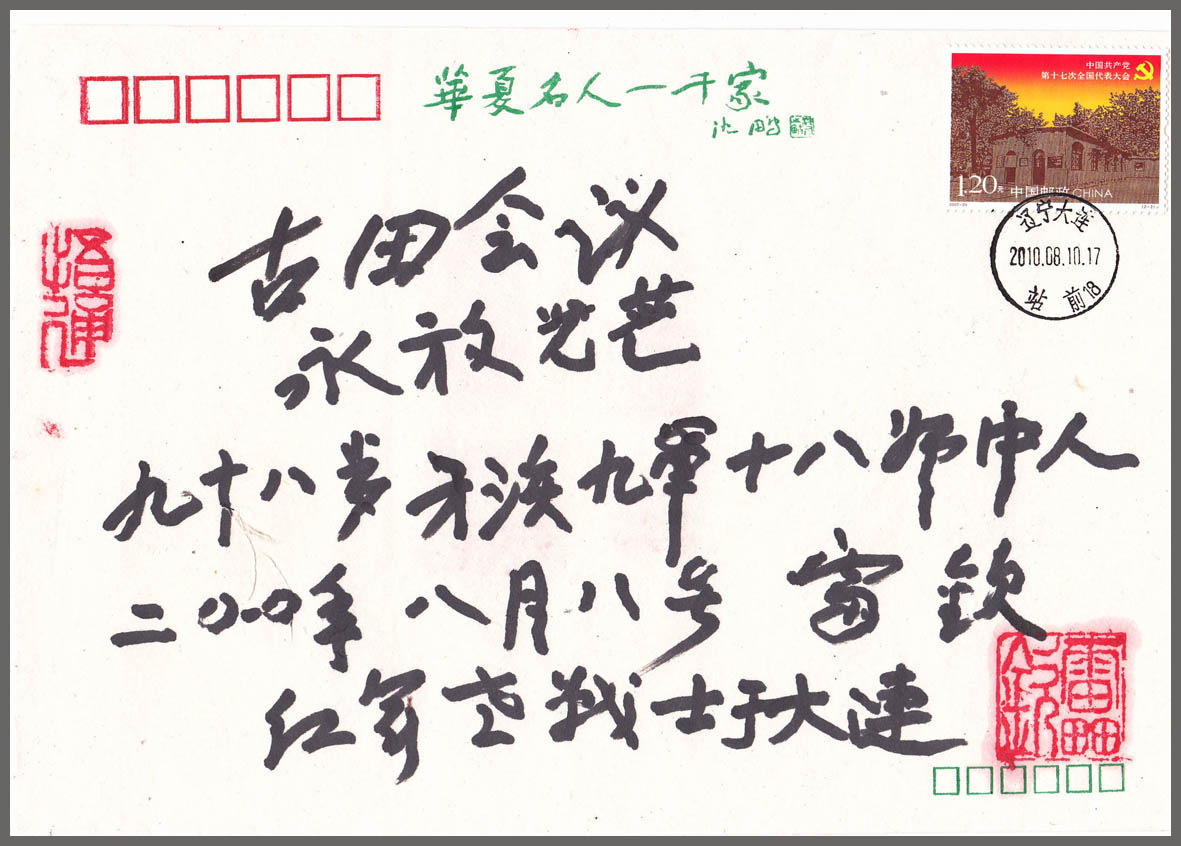 華夏名人一千家
沈鹏
中国共产党
第十七次全国代表大会
1.20元 中国邮政 CHINA
辽宁大连
2010.08.10.17
站前18
古田会议
永放光芒
九十八岁 九军十八师中人
二00一0年 八月八号 钦
红军老战士于大连